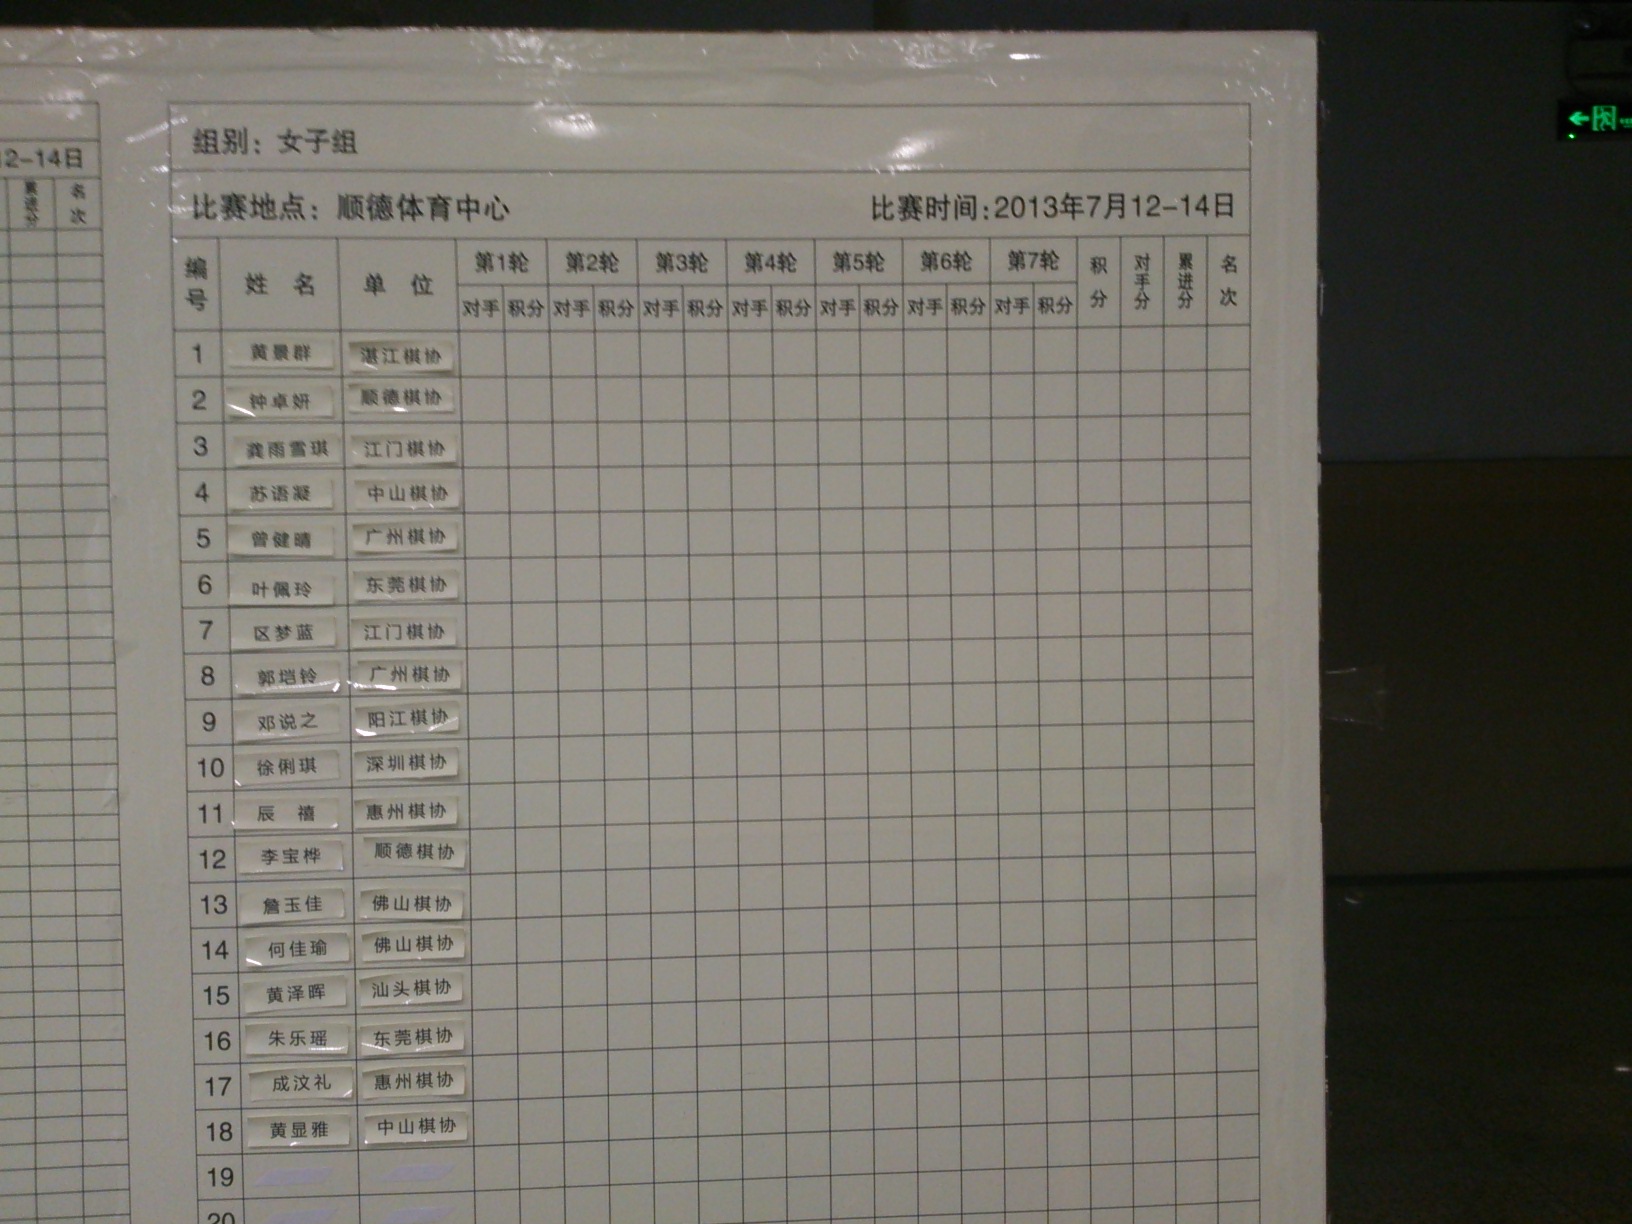 12-14日
累进分 名次
组别：女子组
比赛地点：顺德体育中心 比赛时间:2013年7月12-14日
编号 姓名 单位 第1轮 第2轮 第3轮 第4轮 第5轮 第6轮 第7轮 积分 对手分 累进分 名次
对手 积分 对手 积分 对手 积分 对手 积分 对手 积分 对手 积分 对手 积分
1 黄景群 湛江棋协
2 钟卓妍 顺德棋协
3 龚雨雪琪 江门棋协
4 苏语凝 中山棋协
5 曾健晴 广州棋协
6 叶佩玲 东莞棋协
7 区梦蓝 江门棋协
8 郭垲铃 广州棋协
9 邓说之 阳江棋协
10 徐俐琪 深圳棋协
11 辰禧 惠州棋协
12 李宝桦 顺德棋协
13 詹玉佳 佛山棋协
14 何佳瑜 佛山棋协
15 黄泽晖 汕头棋协
16 朱乐瑶 东莞棋协
17 成汶礼 惠州棋协
18 黄显雅 中山棋协
19
20